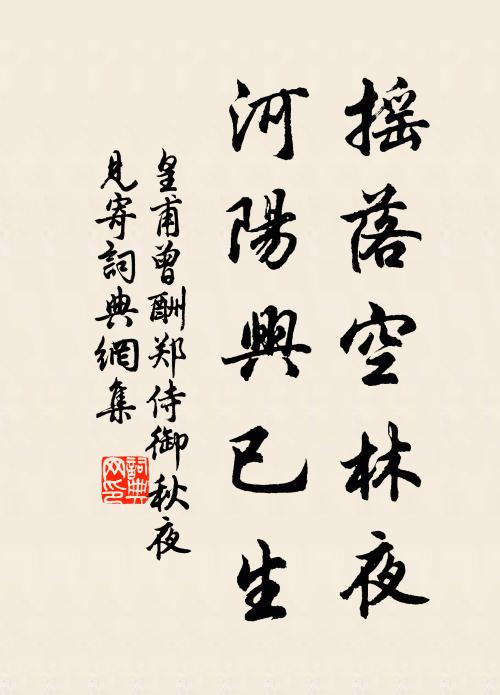 搖落空林夜
河陽興已生
皇甫曾酬郑侍御秋夜
見寄詞典網集
詞典
网印